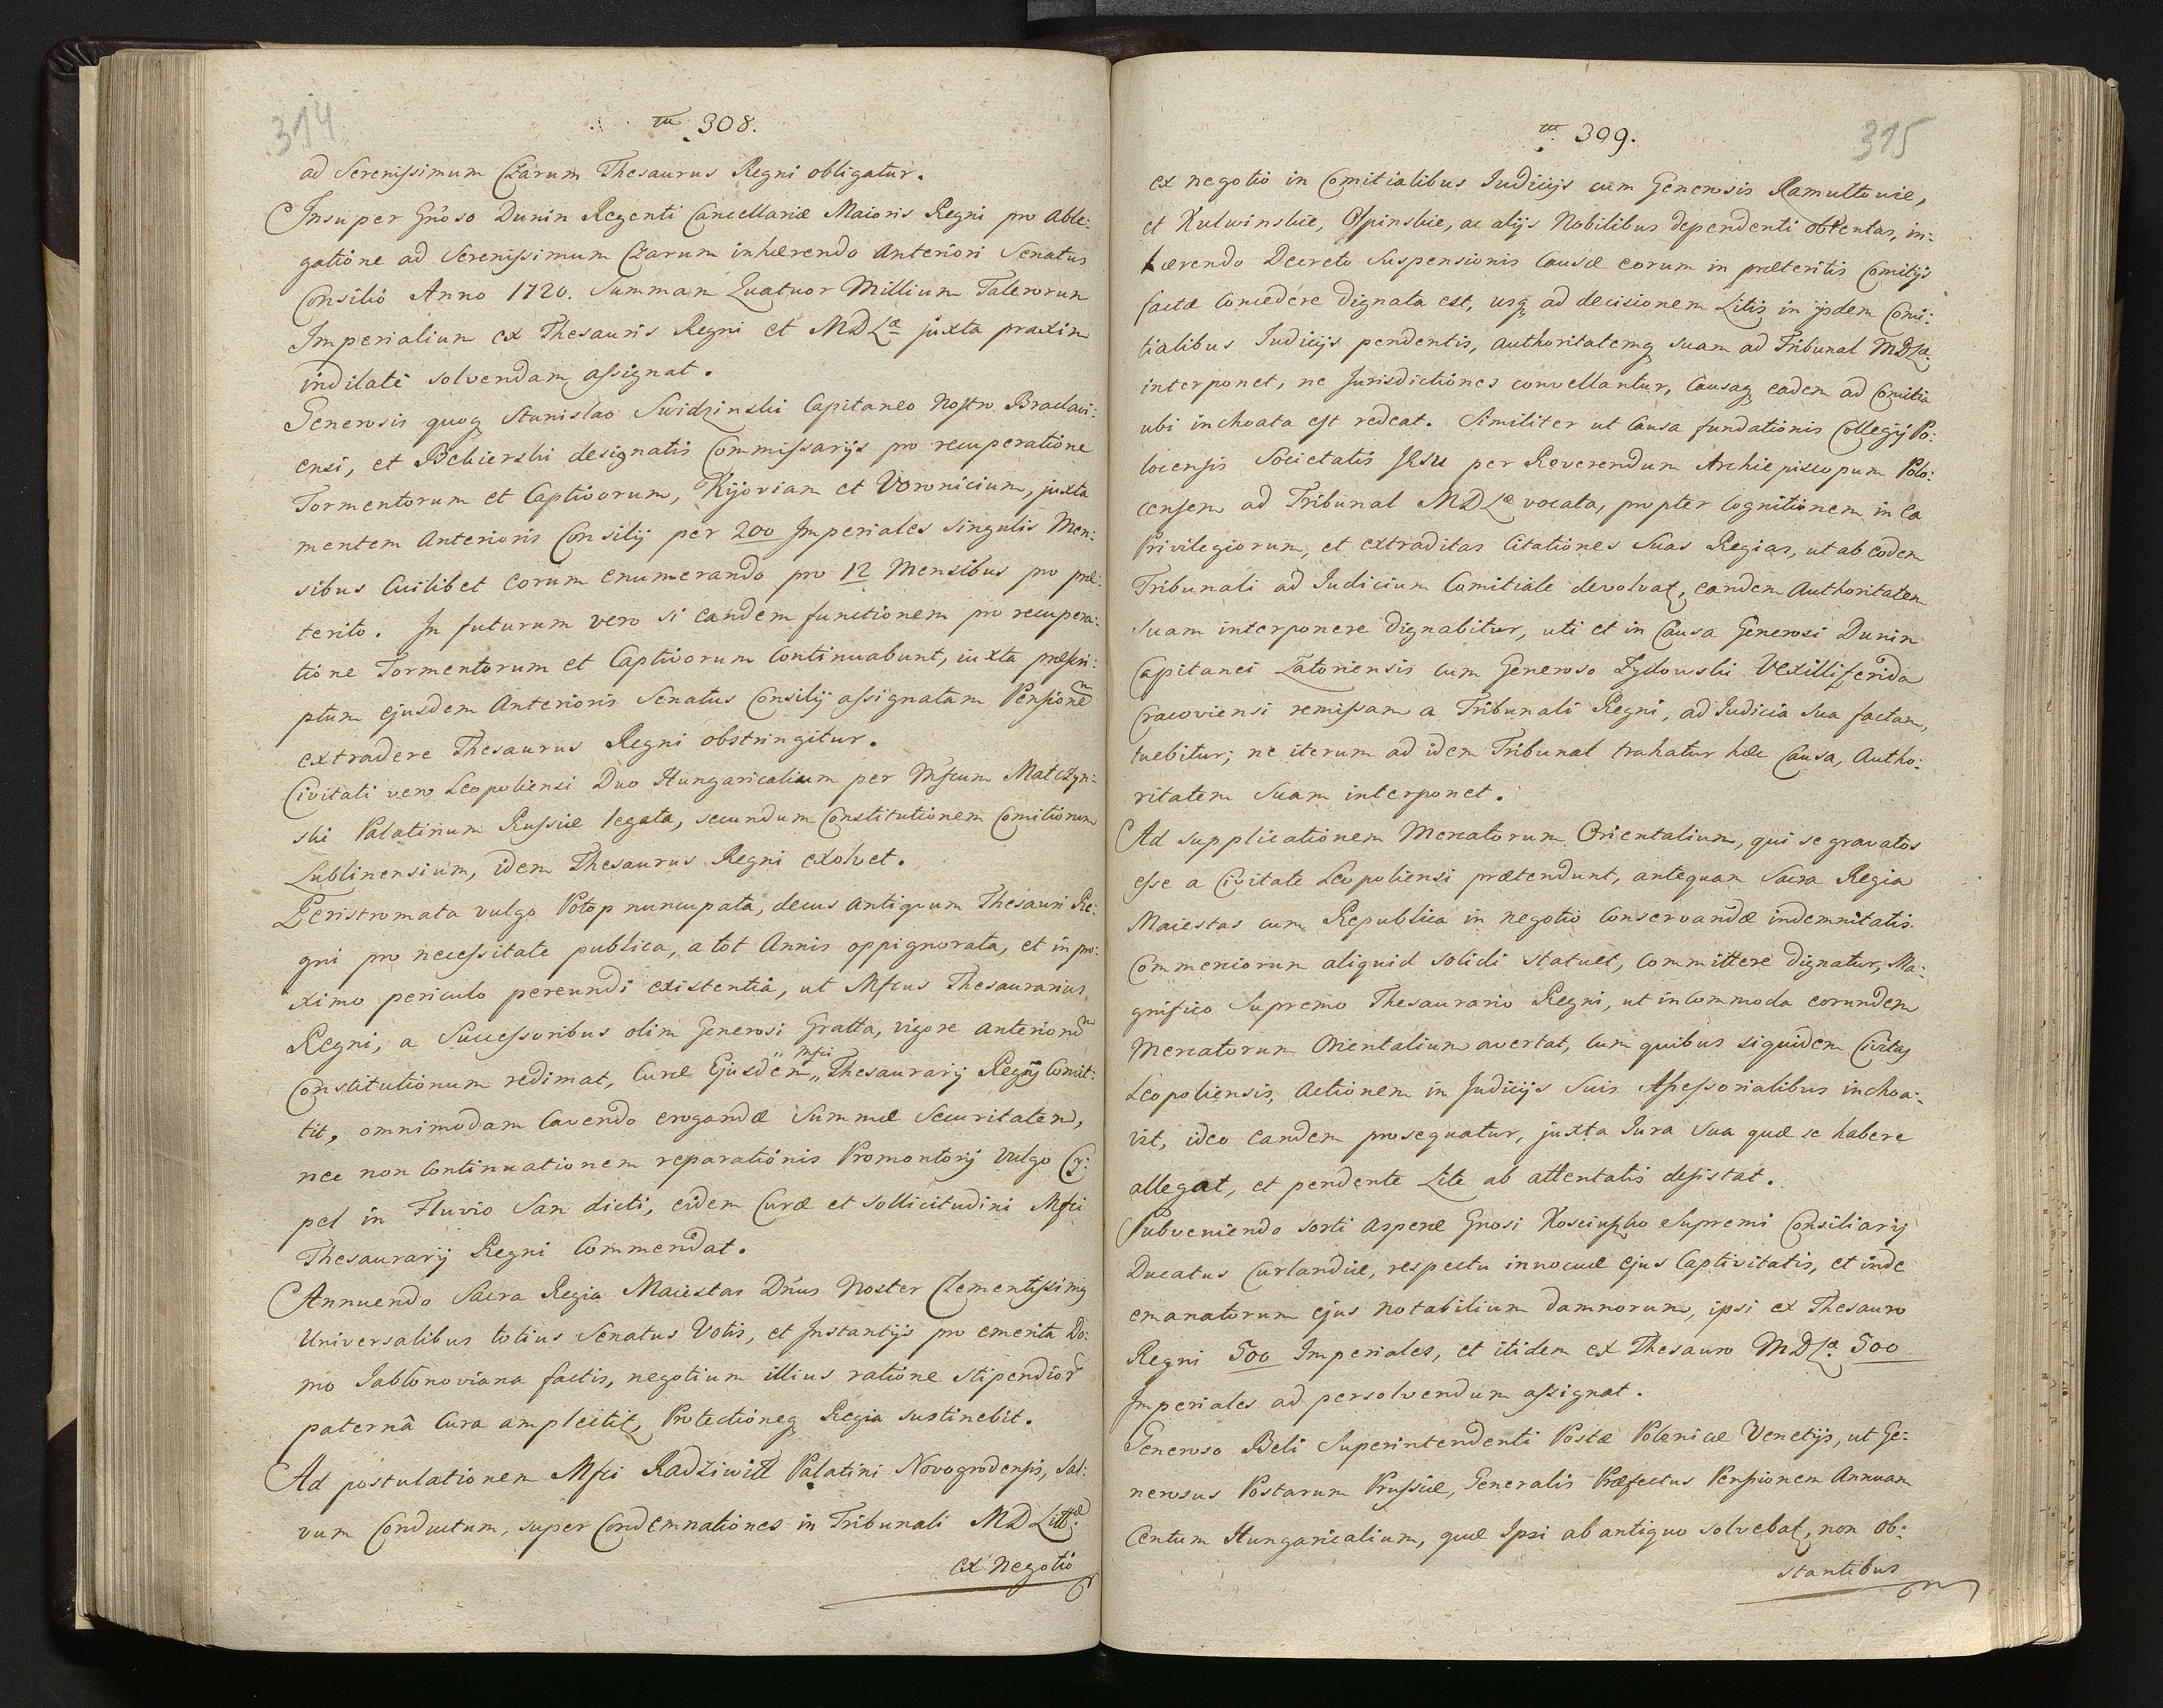 314
308.
ad Serenissimum Czarum Thesaurus Regni obligatur.
Insuper Gnoso Dunin Regenti Cancellariæ Maioris Regni pro Able:
gatione ad Serenissimum Czarum inhærendo Anteriori Senatus
Consilio Anno 1720. Summam Quatuor Millium Talerorum
Imperialium ex Thesauris Regni et MDLæ juxta praxim
indilatè solvendam assignat.
Generosis quoq Stanislao Swidzinski Capitaneo Nostro Braclavi:
ensi, et Bekierski designatis Commissarijs pro recuperatione
Tormentorum et Captivorum, Kijoviam et Voronicium, juxta
mentem Anterioris Consilij per 200 Imperiales singulis Men:
sibus Cuilibet eorum enumerando pro 12 Mensibus pro præ:
terito. In futurum vero si eandem functionem pro recupera:
tione Tormentorum et Captivorum Continuabunt, iuxta præscri:
ptum ejusdem Anterioris Senatus Consilij assignatam Pensionem
extradere Thesaurus Regni obstringitur.
Civitati vero Leopoliensi Duo Hungaricalium per Mfcum Matczyn:
ski Palatinum Russiæ legata, secundum Constitutionem Comitiorum
Lublinensium, idem Thesaurus Regni exolvet.
Peristromata vulgo Potop nuncupata, decus Antiquum Thesauri Re:
gni pro necessitate publica, a tot Annis oppignorata, et in pro:
ximo periculo pereundi existentia, ut Mfcus Thesaurarius
Regni, a Successoribus olim Generosi Gratta, vigore anteriorum
Constitutionum redimat, Curæ Ejusdem „Mfci„ Thesaurarij Regnj Comit:
tit, omnimodam Cavendo erogandæ Summæ Securitatem,
nec non Continuationem reparationis Promontorij vulgo Cy:
pel in Fluvio San dicti, eidem Curæ et sollicitudini Mfci
Thesaurarij Regni Commendat.
Annuendo Sacra Regia Maiestas Dnus Noster Clementissimg
Universalibus totius Senatus Votis, et Instantijs pro emerita Do:
mo Jabłonoviana factis, negotium illius ratione stipendior
paternâ Cura amplectit, Protectioneq Regia sustinebit.
Ad postulationem Mfci Radziwiłł Palatini Novogrodensis, sal:
vum Conductum, super Condemnationes in Tribunali MD Littæ
ex Negotio
309.
315
ex negotio in Comitialibus Iudicijs cum Generosis Ramultowie,
et Kulwinskie, Ospinskie, ac alijs Nobilibus dependenti obtentas, in:
hærendo Decreto Suspensionis Causæ eorum in præteritis Comitijs
factæ Concedere dignata est, usq ad decisionem Litis in ijsdem Comi:
tialibus Iudicijs pendentis, authoritatemq suam ad Tribunal MDLæ
interponet, ne Jurisdictiones convellantur, Causaq eadem ad Comitia
ubi inchoata est redeat. Similiter ut Causa fundationis Collegij Po:
locensis Societatis JESU per Reverendum Archiepiscopum Polo:
censem ad Tribunal MDLæ vocata, propter Cognitionem in ea
Privilegiorum, et extraditas Citationes Suas Regias, ut ab eodem
Tribunali ad Iudicium Comitiale devolvat, eandem Authoritatem
Suam interponere dignabitur, uti et in Causa Generosi Dunin
Capitanei Zatoriensis cum Generoso Zydowski Vexilliferida
Cracoviensi remissam a Tribunali Regni, ad Iudicia Sua factam,
tuebitur; ne iterum ad idem Tribunal trahatur hæc Causa, Autho:
ritatem Suam interponet.
Ad supplicationem Mercatorum Orientalium, qui se gravatos
esse a Civitate Leopoliensi prætendunt, antequam Sacra Regia
Maiestas cum Republica in negotio Conservandæ indemnitatis
Commerciorum aliquid solidi statuet, Committere dignatur, Ma:
gnifico Supremo Thesaurario Regni, ut incommoda eorundem
Mercatorum Orientalium avertat, Cum quibus siquidem Civitas
Leopoliensis, Actionem in Judicijs Suis Assessorialibus inchoa:
vit, ideo eandem prosequatur, juxta Iura Sua quæ se habere
allegat, et pendente Lite ab attentatis desistat.
Subveniendo sorti Asperæ Gnosi Kosciuszko Supremi Consiliarij
Ducatus Curlandiæ, respectu innocuæ ejus Captivitatis, et inde
emanatorum ejus notabilium damnorum, ipsi ex Thesauro
Regni 500 Imperiales, et itidem ex Thesauro MDLæ 500
Imperiales ad persolvendum assignat.
Generoso Beli Superintendenti Postæ Polonicæ Venetijs, ut Ge:
nerosus Postarum Prussiæ, Generalis Præfectus Pensionem Annuam
Centum Hungaricalium, quæ Ipsi ab antiquo solvebat, non ob:
stantibus